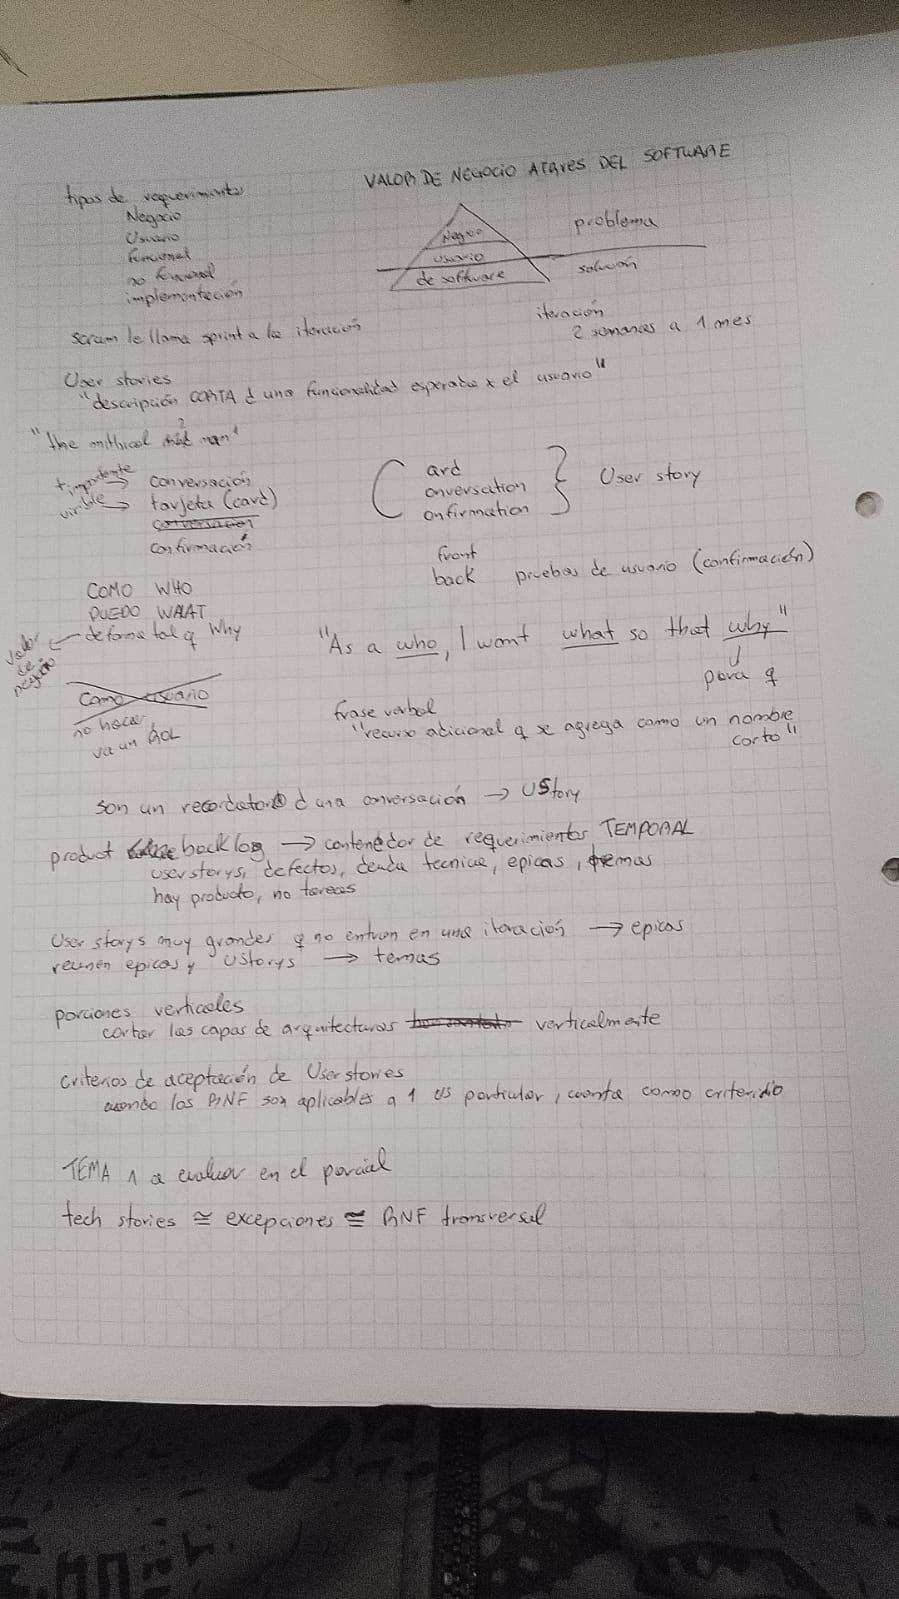 VALOR DE NEGOCIO ATRAVES DEL SOFTWARE
tipos de requerimientos
Negocio
Usuario
funcional
no funcional
implementación
Negocio
usuario
de software
problema
solución
scrum le llama sprint a la iteración
iteración
2 semanas a 1 mes
User stories
"descripción CORTA d una funcionalidad esperada x el usuario"
"the mithical man"
+ importante → conversación
visible → tarjeta (card)
conversación
confirmación
Card
Conversation
Confirmation
User story
front
back pruebas de usuario (confirmación)
COMO WHO
PUEDO WHAT
de forma tal q Why
valor de negocio
"As a who, I want what so that why"
para q
Como usuario
no hacer
va un ROL
frase verbal
"recurso adicional q se agrega como un nombre
corto"
son un recordatorio d una conversación → UStory
product backlog → contenedor de requerimientos TEMPORAL
user storys, defectos, deuda tecnica, epicas, temas
hay producto, no tareas
User storys muy grandes q no entran en una iteración → epicas
reunen epicas y UStorys → temas
porciones verticales
cortar las capas de arquitecturas verticalmente
criterios de aceptación de User stories
cuando los RNF son aplicables a 1 US particular, cuenta como criterio
TEMA 1 a evaluar en el parcial
tech stories ≅ excepciones ≅ RNF transversal